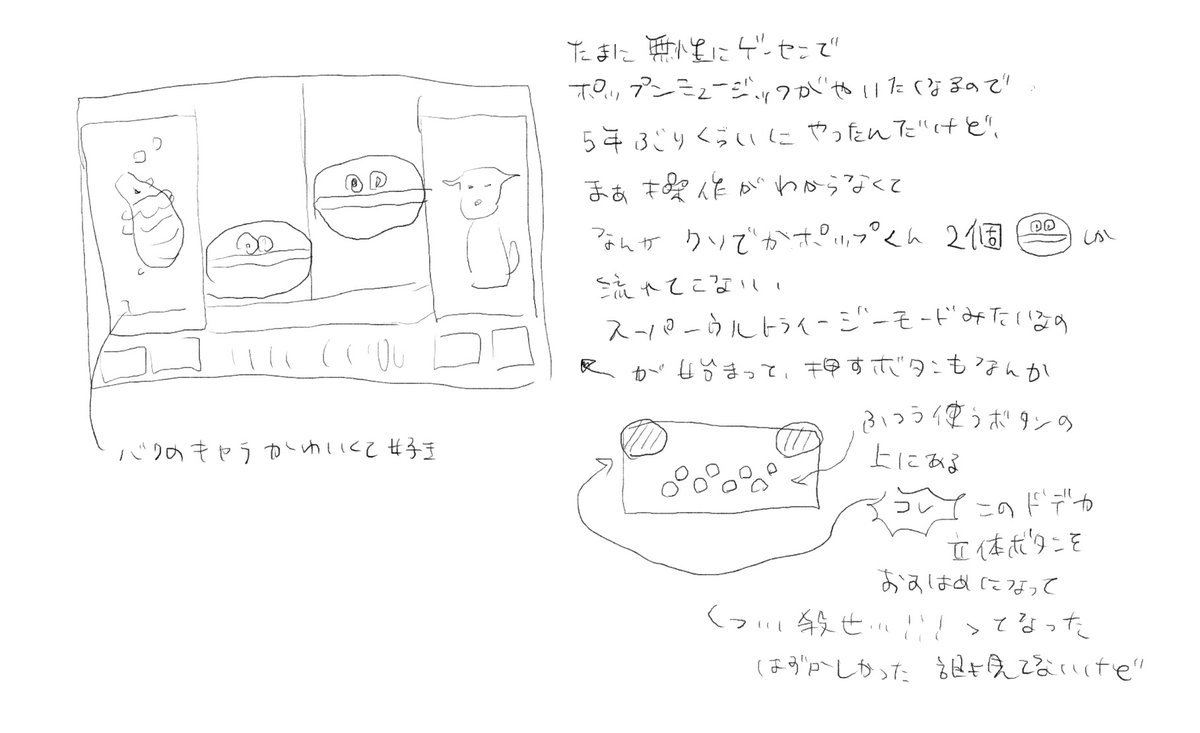 たまに無性にゲーセンで
ポップンミュージックがやりたくなるので
5年ぶりくらいにやったんだけど、
まぁ操作がわからなくて
なんか クソでかポップくん 2個 しか
流れてこない
スーパーウルトライージーモードみたいなの
が始まって、押すボタンもなんか
ふつう使うボタンの
上にある
コレ このドデカ
立体ボタンを
おすはめになって
くっ…殺せ…!!!ってなった
はずかしかった 誰も見てないけど
バクのキャラかわいくて好き